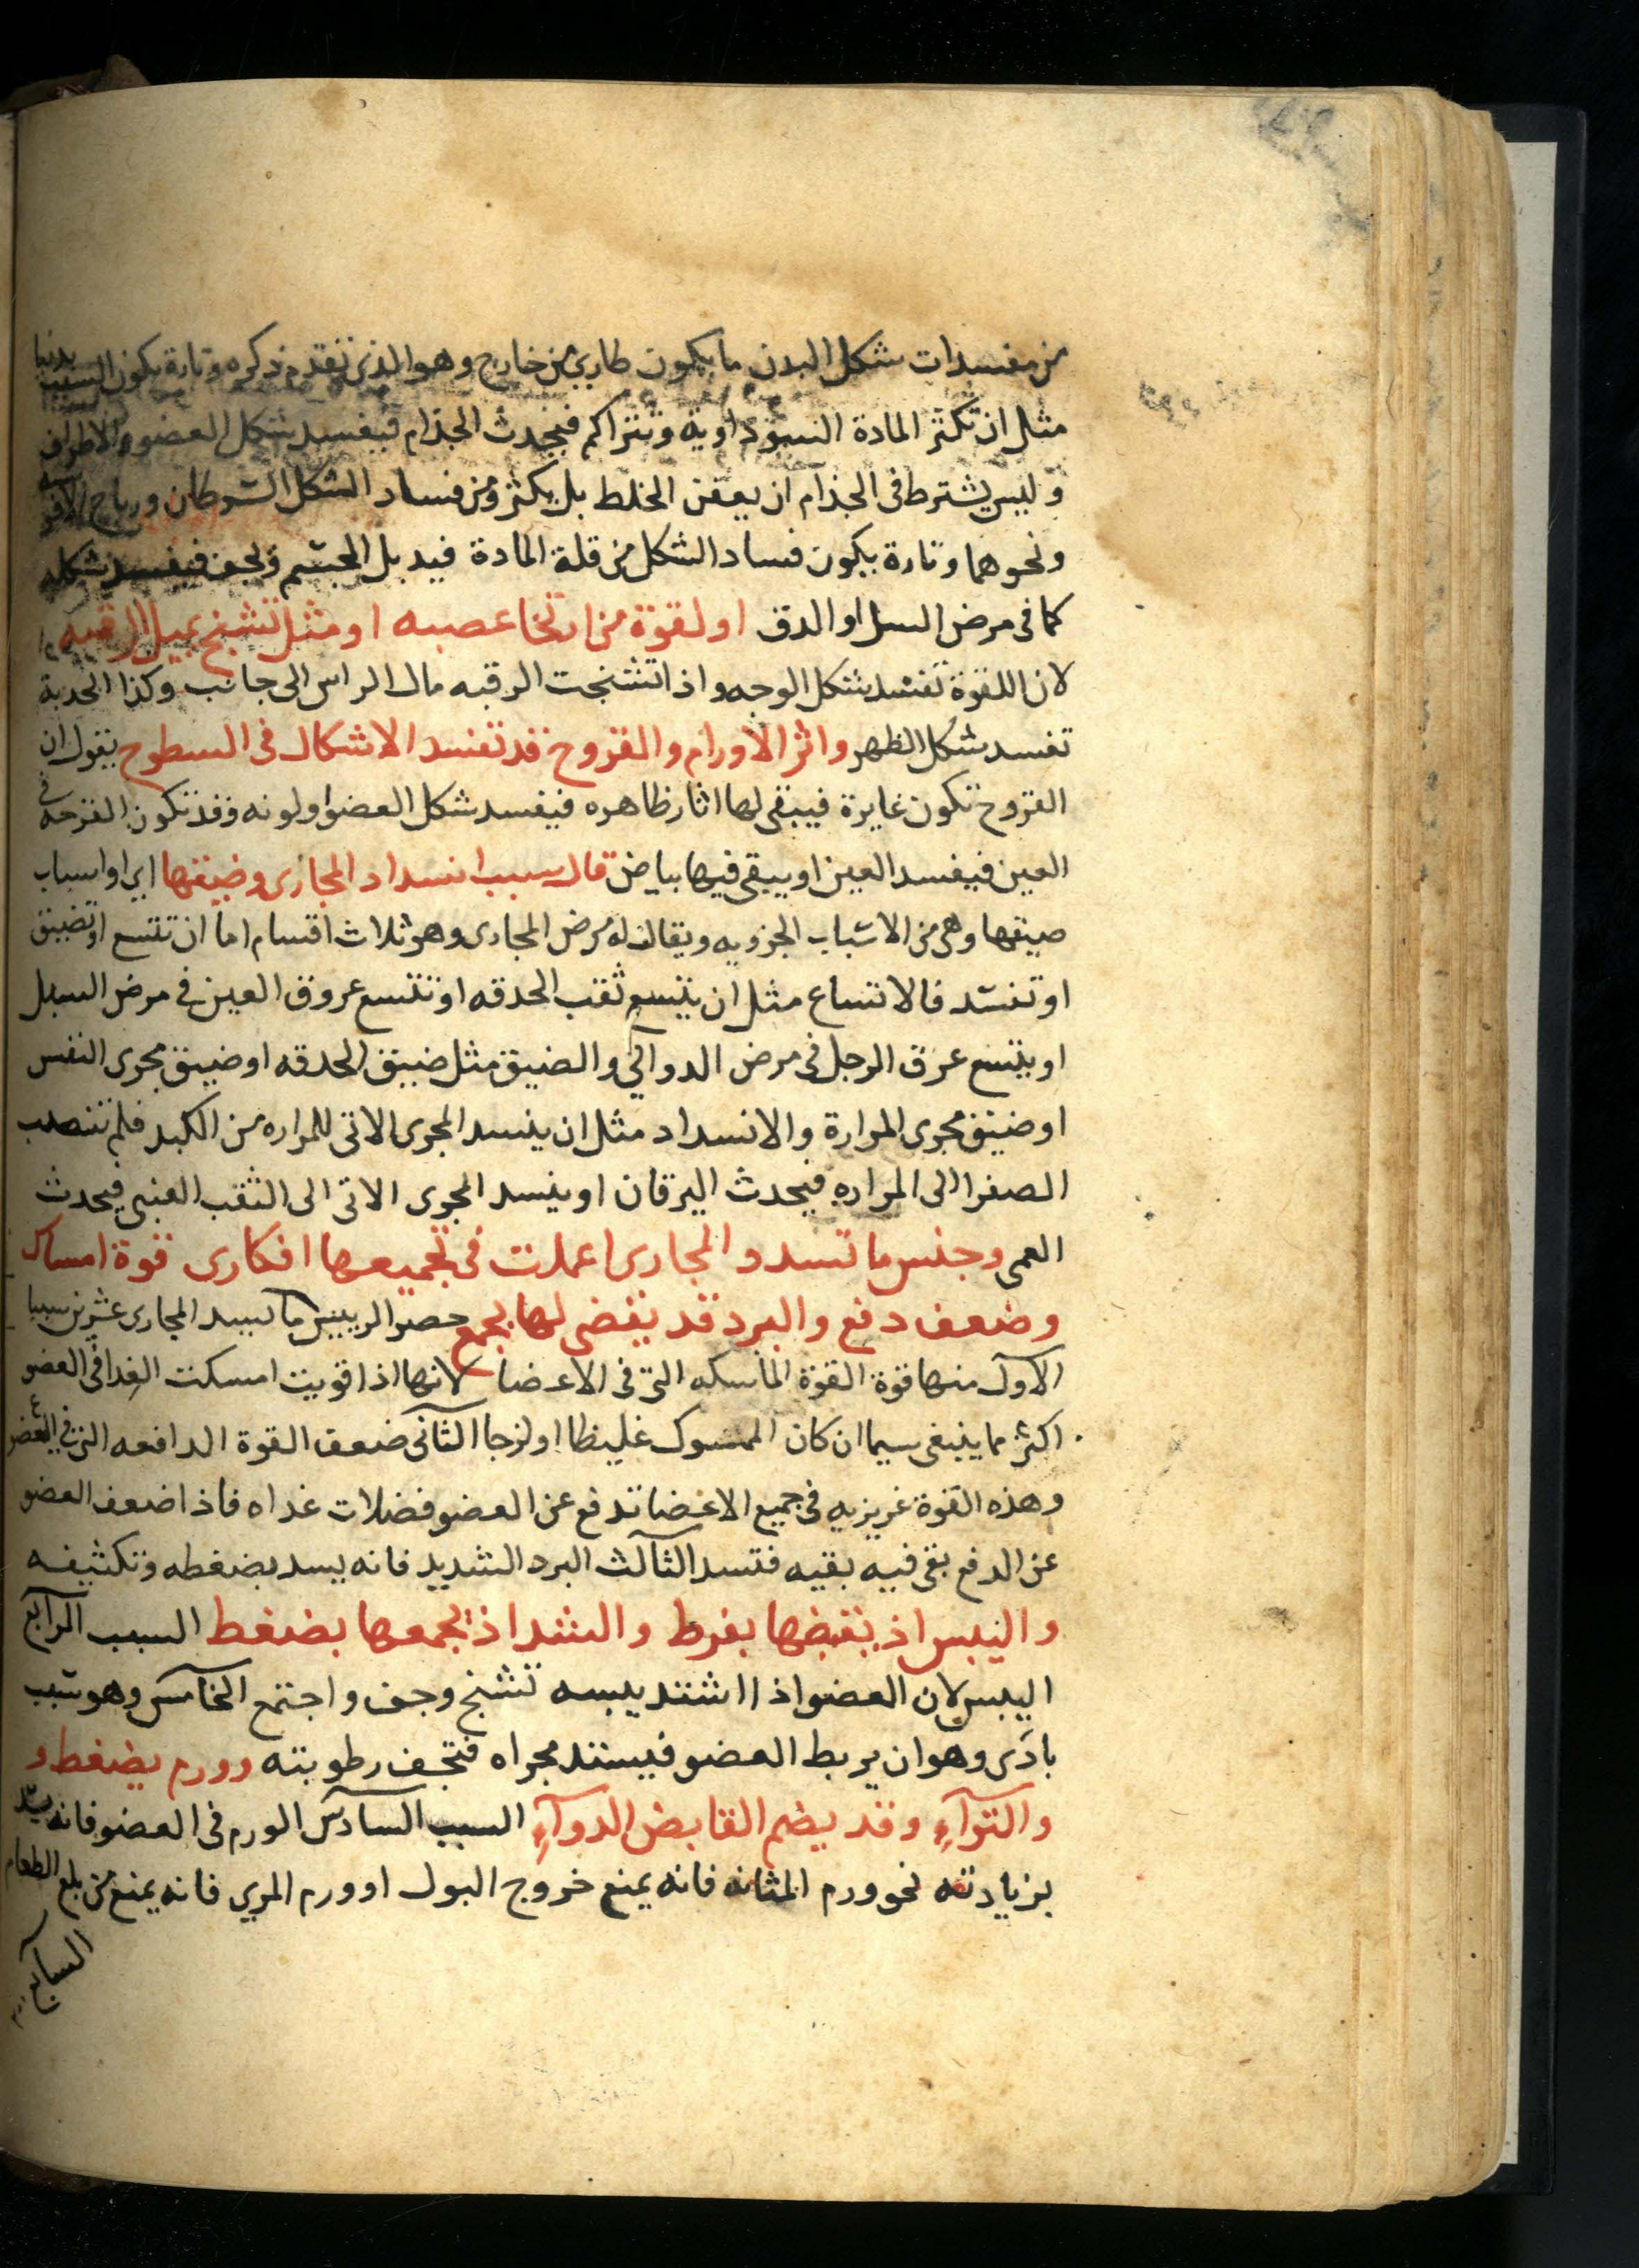 من مفسدات شكل البدن ما يكون طاري من خارج وهو الذي تقدم ذكره وتارة يكون السبب بدنيا
مثل ان تكثر المادة السوداوية وتتراكم فيحدث الجذام فيفسد شكل العضو والاطراف
وليس يشترط في الجذام ان يعفن الخلط بل يكثر ومن فساد الشكل السرطان ورياح الافرسه
ونحوهما وتارة يكون فساد الشكل من قلة المادة فيدبل الجسم ويجف فيفسد شكله
كما في مرض السل او الدق او لقوة من ارتخا عصبه او مثل تشنج يميل الرقبه
لان اللقوة تفسد شكل الوجه واذا تشنجت الرقبه مال الراس الى جانب وكذا الحدبة
تفسد شكل الظهر واثر الاورام والقروح قد تفسد الاشكال في السطوح يقول ان
القروح تكون غايرة فيبقى لها اثار ظاهره فيفسد شكل العضو او لونه وقد تكون القرحه في
العين فيفسد العين او يبقى فيها بياض قال سبب انسداد المجاري وضيقها اي او اسباب
ضيقها وهي من الاسباب الجزويه ويقال له مرض المجاري وهو ثلاث اقسام اما ان تتسع او تضيق
او تفسد فالاتساع مثل ان يتسع ثقب الحدقه او تتسع عروق العين في مرض السبل
او يتسع عرق الرجل في مرض الدوالي والضيق مثل ضيق الحدقه او ضيق مجرى النفس
او ضيق مجرى المرارة والانسداد مثل ان ينسد المجرى الاتي للمراره من الكبد فلم تنصب
الصفرا الى المراره فيحدث اليرقان او ينسد المجرى الاتي الى الثقب العنبي فيحدث
العمى وجنس ما تسدد المجاري اعملت في تجميعها افكاري قوة امساك
وضعف دفع والبرد قد يقضي لها بجمع حصر الرييس ما يسد المجاري عشرين سببا
الاول منها قوة القوة الماسكه التي في الاعضا لانها اذا قويت امسكت الغدا في العضو
اكثر مما ينبغي سيما ان كان الممسوك غليظا او لزجا الثاني ضعف القوة الدافعه التي في العضو
وهذه القوة غريزيه في جميع الاعضا تدفع عن العضو فضلات غداه فاذا ضعف العضو
عن الدفع بقى فيه بقيه فتسد الثالث البرد الشديد فانه يسد بضغطه وتكثيفه
واليبس اذ يقبضها بفرط والشد اذ يجمعها بضغط السبب الرابع
اليبس لان العضو اذا اشتد يبسه تشنج وجف واجتمع الخامس وهو سبب
بادى وهو ان يربط العضو فيستد مجراه فتجف رطوبته وورم يضغط و
والتواء وقد يضم القابض الدواء السبب السادس الورم في العضو فانه يسد
بزيادته نحو ورم المثانه فانه يمنع خروج البول او ورم المري فانه يمنع من بلع الطعام
السابع